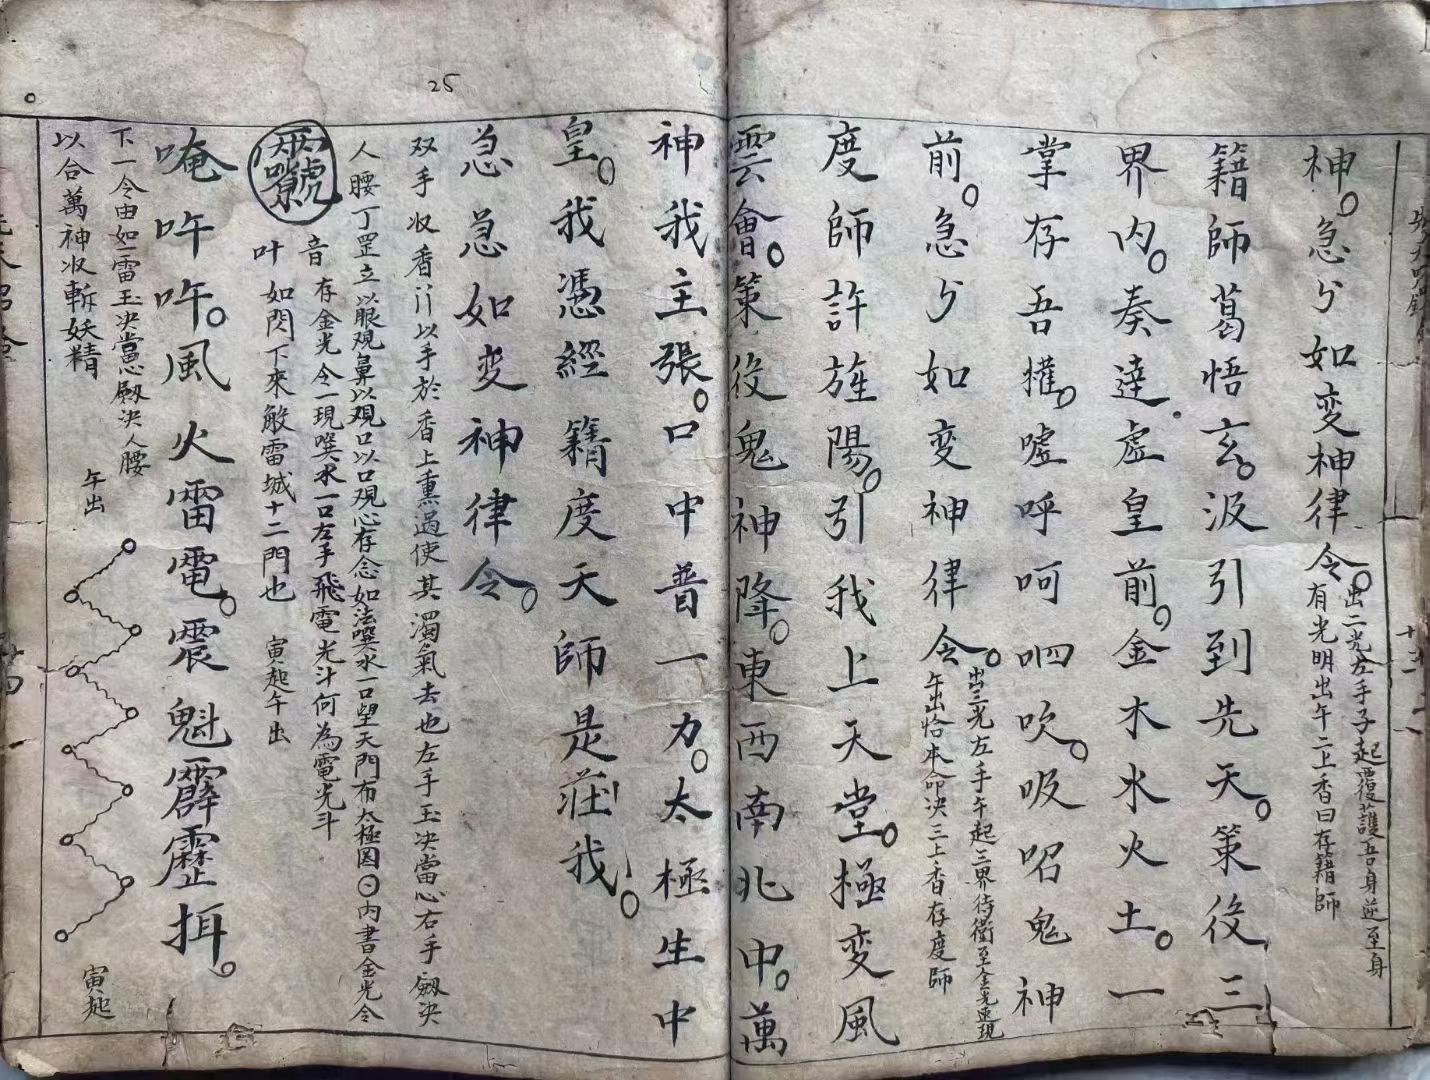 神。急〃如变神律令。出二光左手子起覆護吾身逆至身
有光明出午二上香曰存籍師
籍師葛悟玄。汲引到先天。策役三
界内。奏達虚皇前。金木水火土。一
掌存吾權。嘘呼呵呬吹。吸呫鬼神
前。急〃如变神律令。出三光左手午起三界侍衛至金光速現
午出恰本命决三上香存度師
度師許旌陽。引我上天堂。極变風
雲會。策役鬼神降。東西南北中。萬
神我主張。口中普一力。太極生中
皇。我憑經籍度天師是莊我。
急急如变神律令。
双手収香以手於香上熏過使其濁氣去也左手玉决當心右手劔决
人腰丁罡立以眼观鼻以观口以口观心存念如法噀水一口望天門布太極圓内書金光令
音存金光令一現噀水一口左手飛電光斗何為電光斗
叶如閃下來敵雷城十二門也 寅起午出
唵吽吽。風火雷電。震魁霹靂揖。
下一令由如雷玉决當心劔决人腰
以合萬神収斬妖精 午出
寅起
25